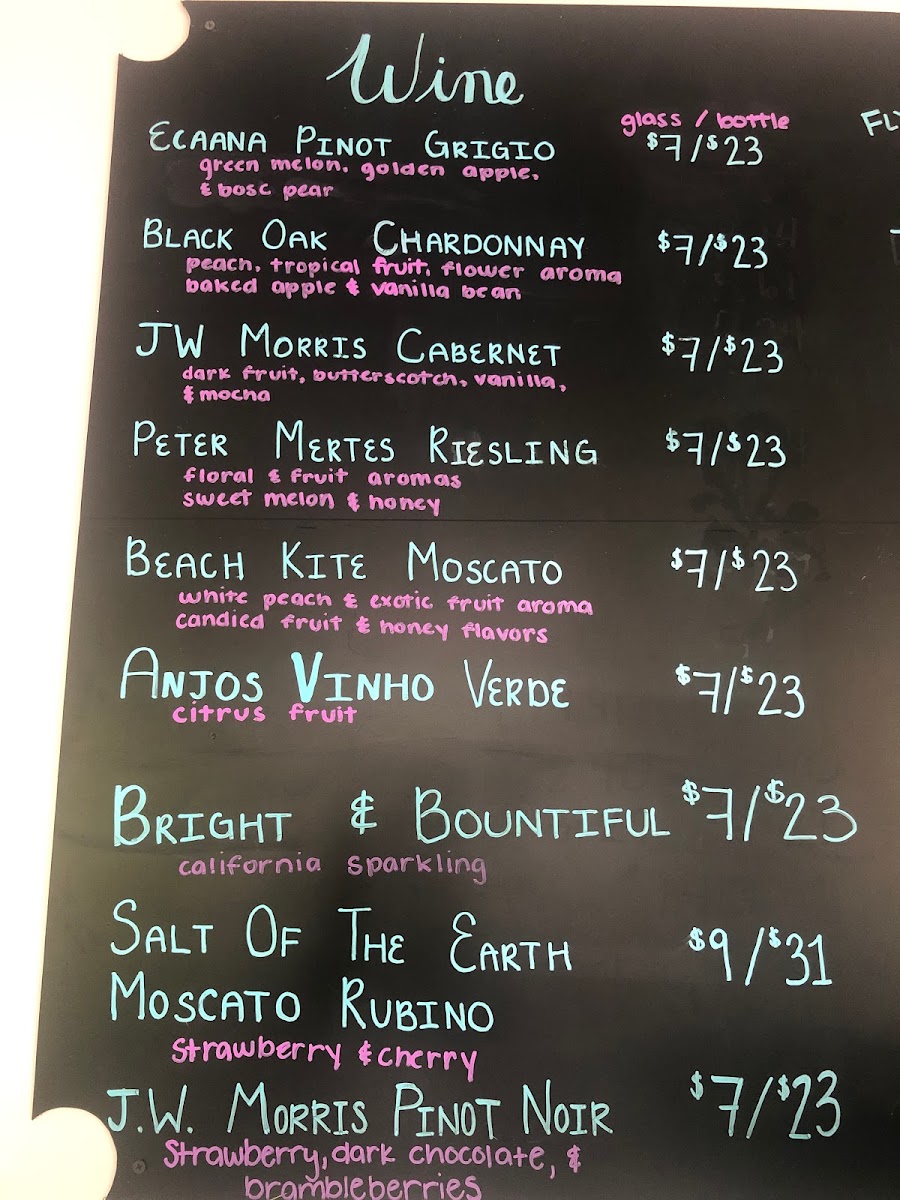 Wine
glass / bottle
FL
ECAANA PINOT GRIGIO $7/$23
green melon, golden apple,
& bosc pear
BLACK OAK CHARDONNAY $7/$23
peach, tropical fruit, flower aroma
baked apple & vanilla bean
JW MORRIS CABERNET $7/$23
dark fruit, butterscotch, vanilla,
& mocha
PETER MERTES RIESLING $7/$23
floral & fruit aromas
sweet melon & honey
BEACH KITE MOSCATO $7/$23
white peach & exotic fruit aroma
candied fruit & honey flavors
ANJOS VINHO VERDE $7/$23
citrus fruit
BRIGHT & BOUNTIFUL $7/$23
california sparkling
SALT OF THE EARTH $9/$31
MOSCATO RUBINO
Strawberry & cherry
J.W. MORRIS PINOT NOIR $7/$23
Strawberry, dark chocolate, &
brambleberries